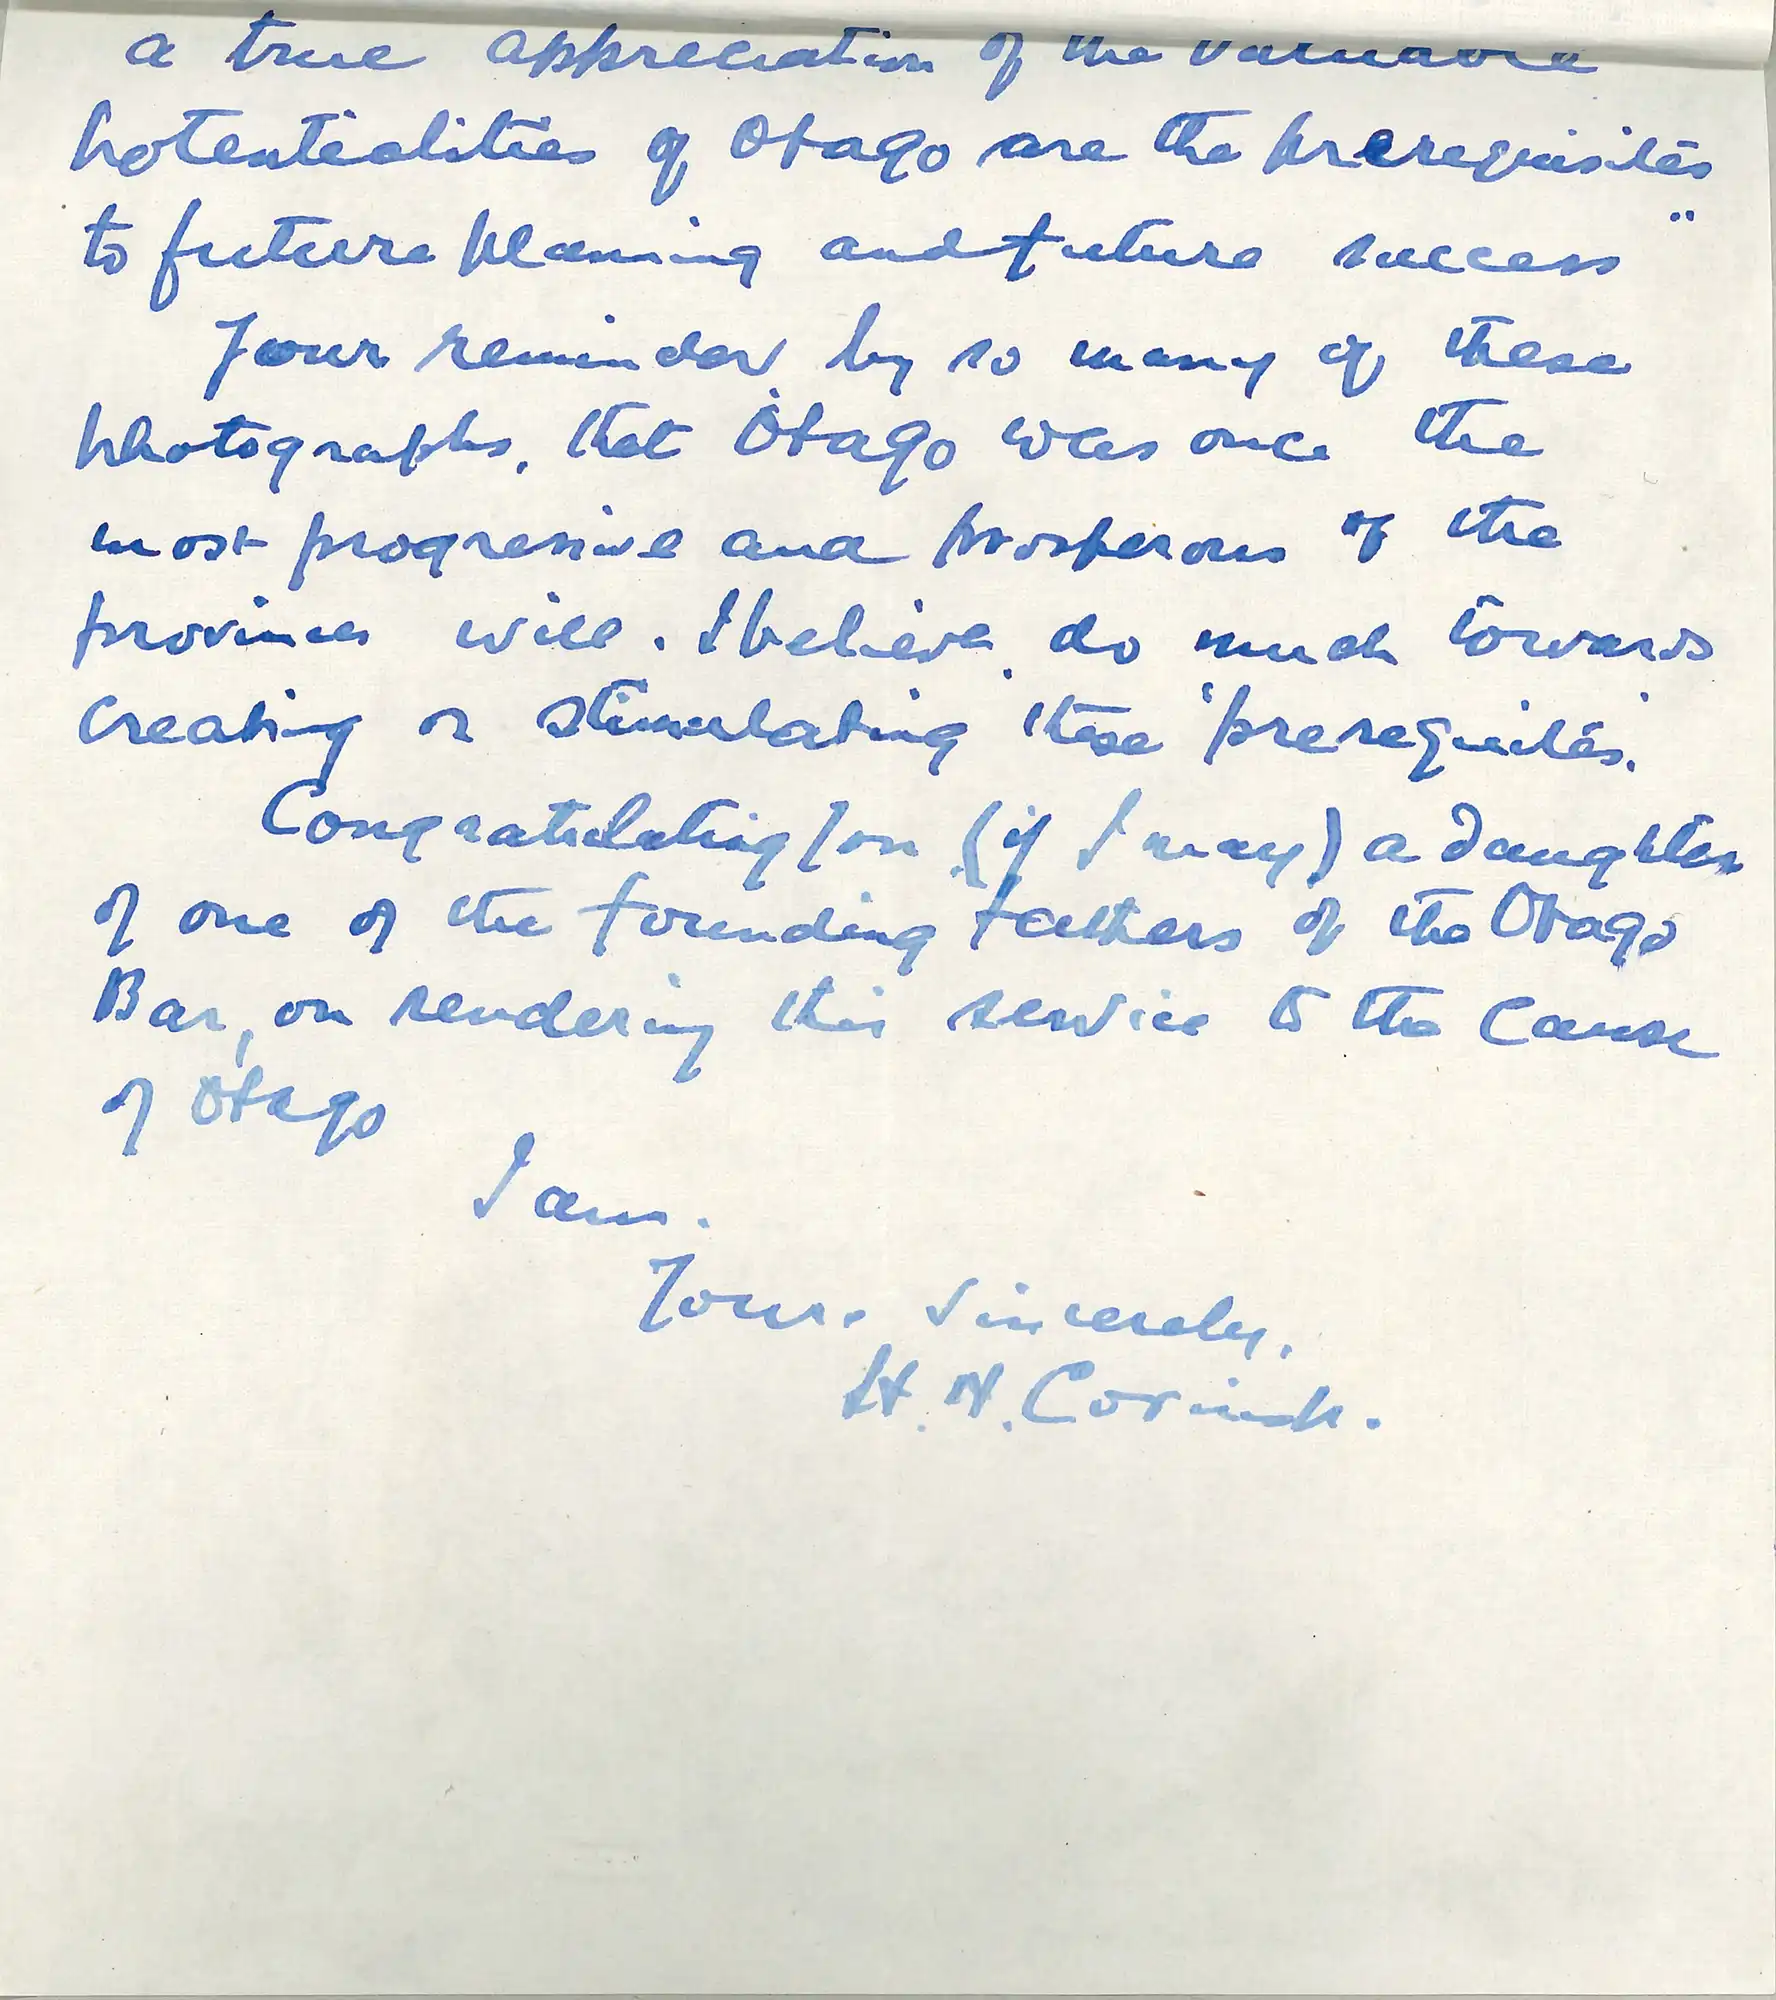 a true appreciation of the valuable
potentialities of Otago are the prerequisites
to future planning and future success"
Your reminder, by so many of these
photographs, that Otago was once the
most progressive and prosperous of the
provinces will, I believe, do much towards
creating or stimulating these 'prerequisites'.
Congratulating you (if I may) a daughter
of one of the founding fathers of the Otago
Bar, on rendering this service to the cause
of Otago
I am.
Yours sincerely,
H. N.